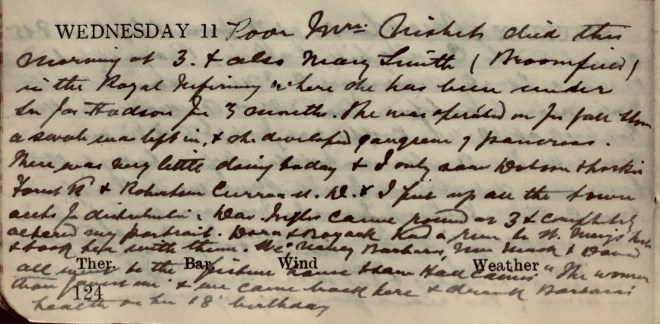 WEDNESDAY 11 Poor Mrs. Nisbet died this
morning at 3. & also Mary Smith (Broomfield)
in the Royal Infirmary where she has been under
Dr Jas Hadson for 3 months. She was operated on for gall stone
a swab was left in, & she developed gangrene of pancreas.
There was very little doing today & I only saw Watson
Forest Rd & Robertson Currand. D. & I put up all the town
accts for distribution. Dav. came round at 3 & completely
altered my portrait. Dora & had a run to St. Mary's
& took her with them. We, Nancy, Barbara, & David
all went to the picture Hall "The woman
thou gavest me" & we came back here & drank Barbara's
health on her 18th birthday
Ther. Bar. Wind Weather
124